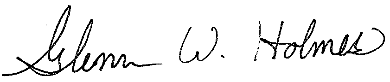 Glenn W. Holmes